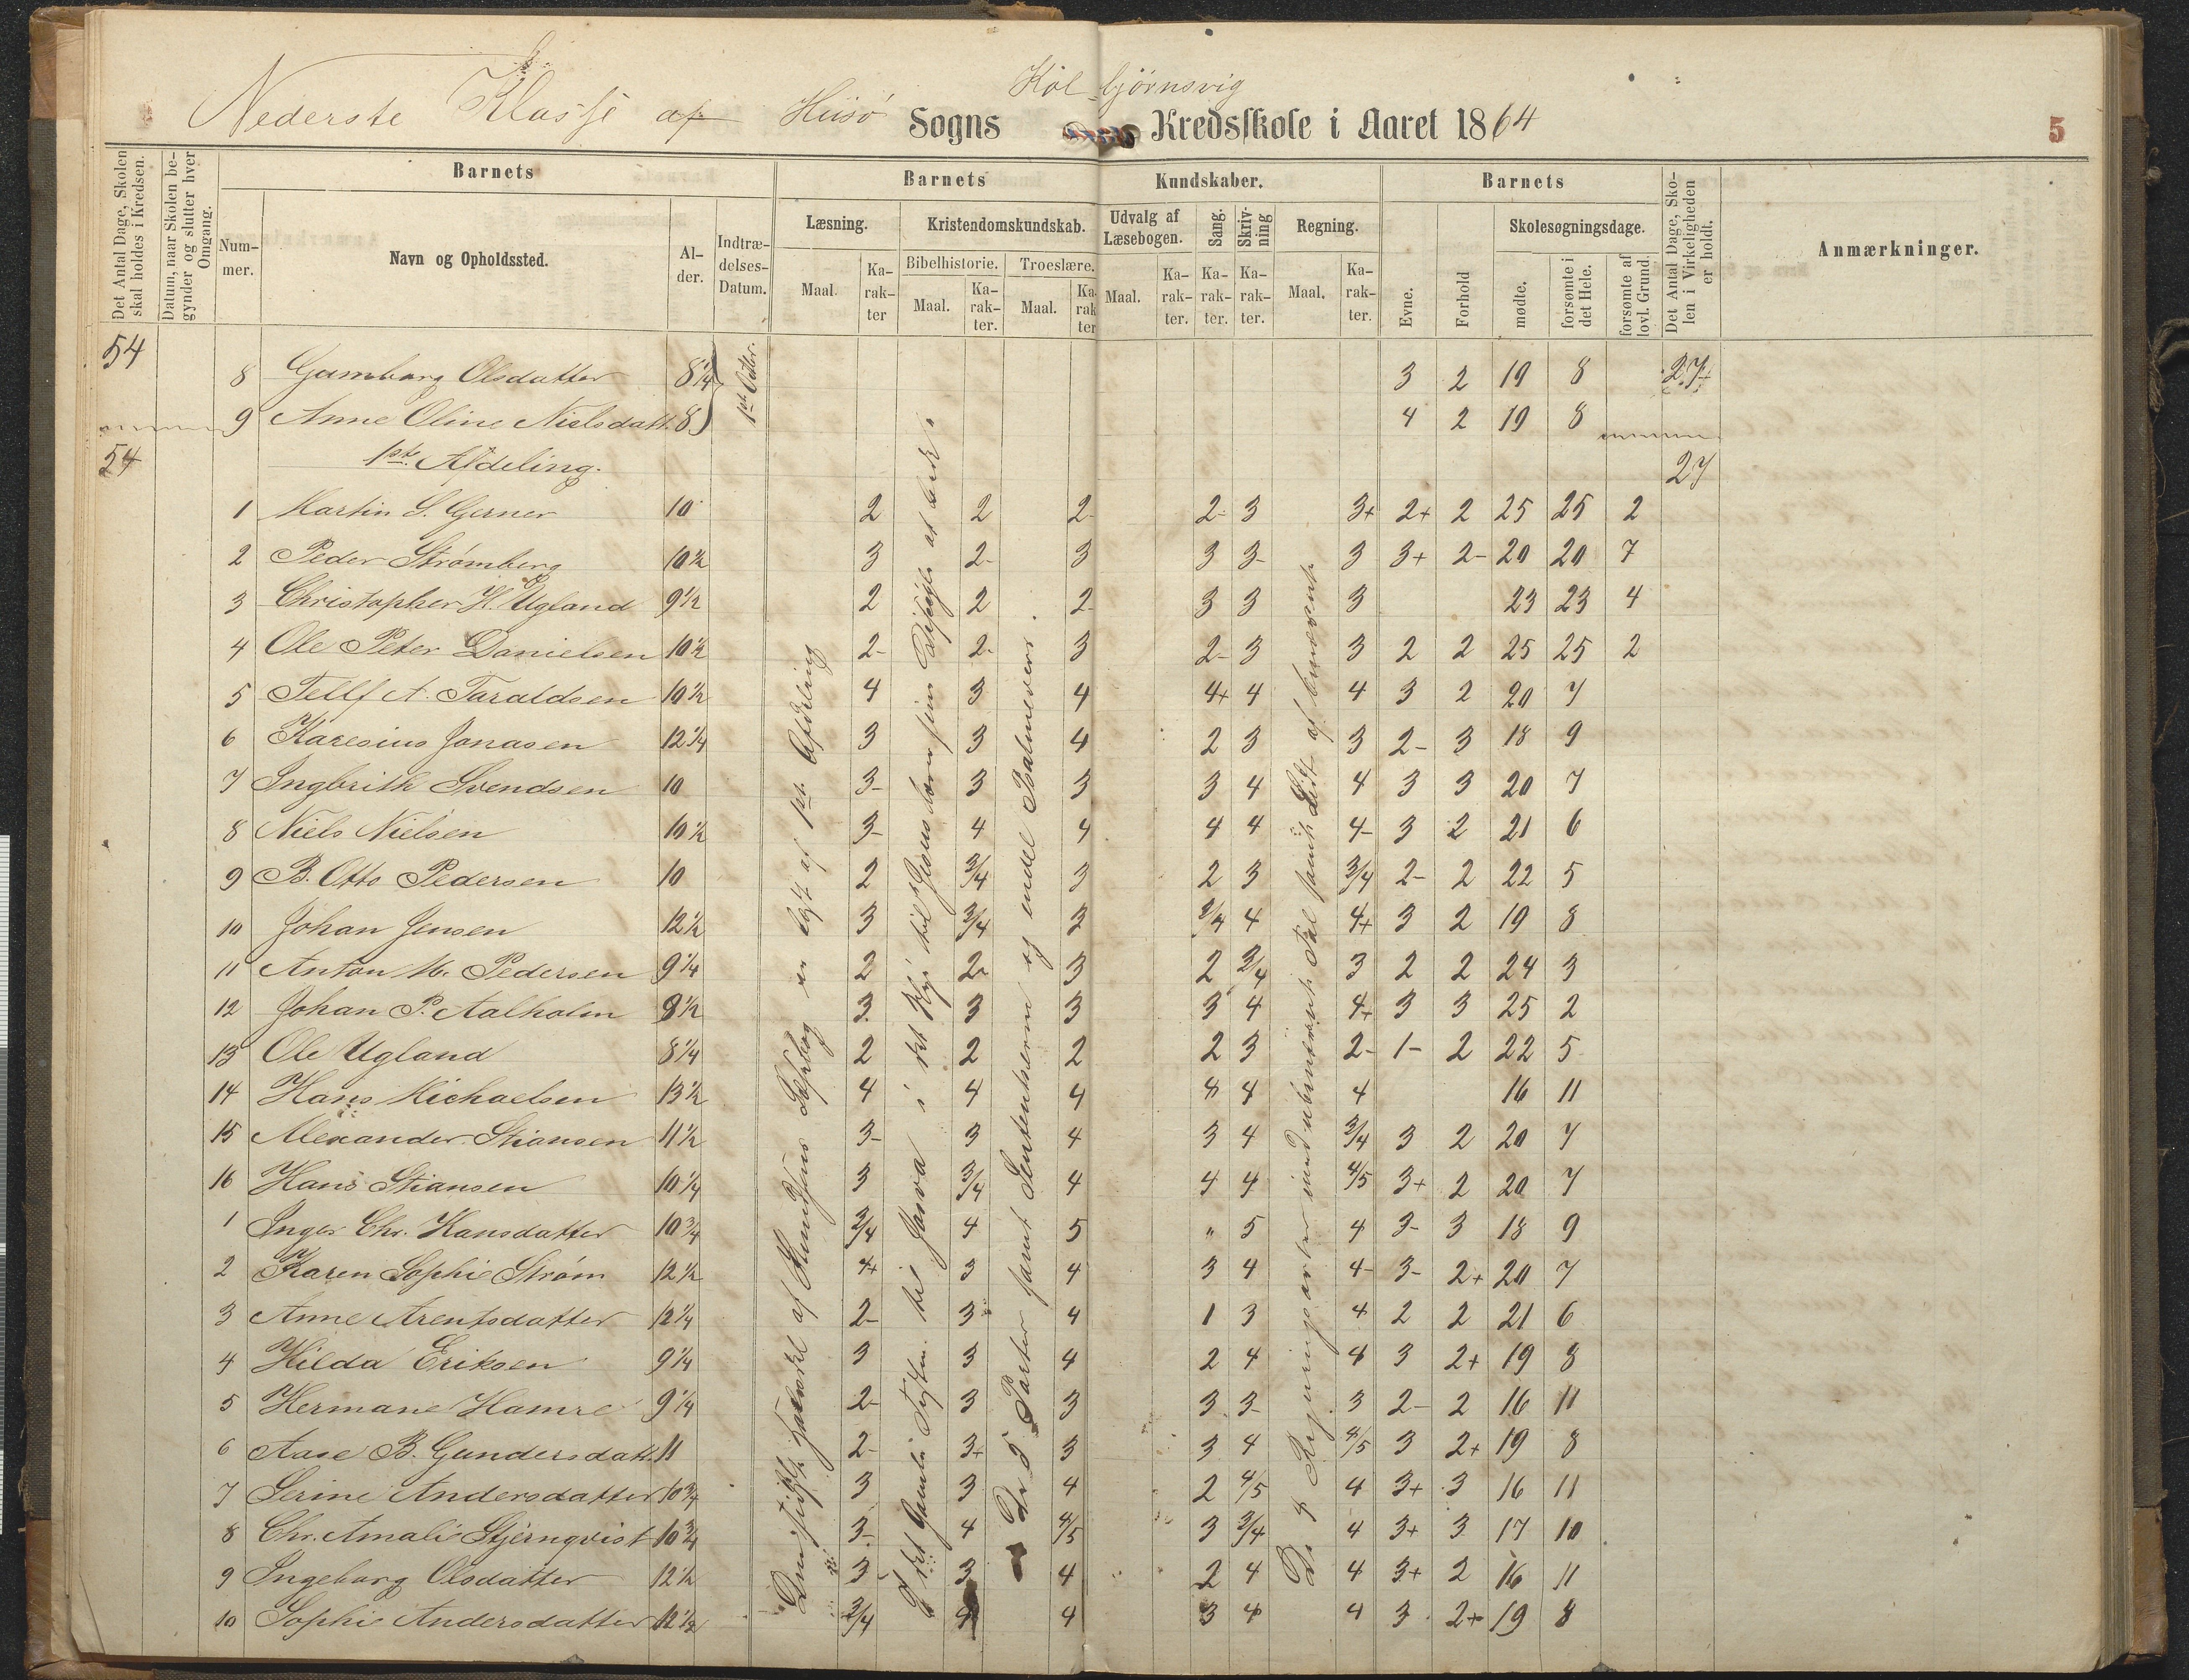 Kolbjørnsvig
Nederste Klasse af Hiisø Sogns Kredsskole i Aaret 1864
5
Det Antal Dage, Skolen skal holdes i Kredsen.
Datum, naar Skolen begynder og slutter hver Omgang.
Barnets
Barnets Kundskaber.
Barnets
Det Antal Dage, Skolen i Virkeligheden er holdt.
Anmærkninger.
Nummer.
Navn og Opholdssted.
Alder.
Indtrædelses-Datum.
Læsning.
Kristendomskundskab.
Udvalg af Læsebogen.
Sang.
Skrivning
Regning.
Evne.
Forhold
Skolesøgningsdage.
Bibelhistorie.
Troeslære.
Maal.
Karakter
Maal.
Karakter.
Maal.
Karakter
Maal.
Karakter.
Karakter.
Karakter.
Maal.
Karakter.
mødte.
forsømte i det Hele.
forsømte af lovl. Grund.
54
8 Gumborg Olsdatter 8 1/4 1ste Octbr. 3 2 19 8 27
9 Anne Oline Nielsdatt. 8 4 2 19 8
54 1ste Afdeling. 27
1 Martin S. Gerner 10 2 2 2- 2- 3 3+ 2+ 2 25 25 2
2 Peder Strømberg 10 1/2 3 2- 3 3 3- 3 3+ 2- 20 20 7
3 Christopher H. Ugland 9 1/2 2 2 2- 3 3 3 23 23 4
4 Ole Peter Danielsen 10 1/2 2- 2- 3 2- 3 3 2 2 25 25 2
5 Tellf A. Taraldsen 10 1/2 4 3 4 4+ 4 4 3 2 20 7
6 Karesius Jonasen 12 1/4 3 3 4 2 3 3 2- 3 18 9
7 Ingbrith Svendsen 10 3- 3 3 3 4 4 3 3 20 7
8 Niels Nielsen 10 1/2 3- 4 4 4 4 4- 3 2 21 6
9 B. Otto Pedersen 10 2 3/4 3 2 3 3/4 2- 2 22 5
10 Johan Jensen 12 1/2 3 3/4 3 3/4 4 4+ 3 2 19 8
11 Anton M. Pedersen 9 1/4 2 2- 3 2 3/4 3 2 2 24 3
12 Johan P. Aalholm 9 1/2 3 3 3 3 4 4+ 3 3 25 2
13 Ole Ugland 8 1/4 2 2 2 2 3 2- 1- 2 22 5
14 Hans Michaelsen 13 1/2 4 4 4 4 4 4 16 11
15 Alexander Stiansen 11 1/2 3- 3 4 3 4 3/4 3 2 20 7
16 Hans Stiansen 10 1/4 3 3/4 4 4 4 4/5 3+ 2 20 7
1 Inger Chr. Hansdatter 10 3/4 3/4 4 5 " 5 4 3- 3 18 9
2 Karen Sophie Strøm 12 1/2 4+ 3 4 3 4 4- 3- 2+ 20 7
3 Anne Arentsdatter 12 1/4 2- 3 4 1 3 4 2 2 21 6
4 Hilda Eriksen 9 1/4 3 3 4 2 4 4 3 2+ 19 8
5 Hermane Hamre 9 1/4 2- 3 3 3 3- 3 2- 2 16 11
6 Aase B. Gundersdatt. 11 2- 3+ 3 3 4 4/5 3 2+ 19 8
7 Serine Andersdatter 10 3/4 3 3 4 2 4/5 4 3+ 3 16 11
8 Chr. Amalie Stjernqvist 10 3/4 3- 4 4/5 3 3/4 4 3+ 3 17 10
9 Ingeborg Olsdatter 12 1/2 3- 3 4 2 4 4 3+ 2 16 11
10 Sophie Andersdatter 12 1/2 3/4 4 4 3 4 4 3 2+ 19 8
Læsebog er læst af 1ste Afdeling
De 5 Parter samt Sentenserne og endel Psalmevers.
De 4 Regningsarter med ubenævnt Tal samt Lidt af benævnte